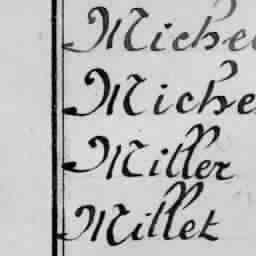 Miche
Miche
Miller
Millet